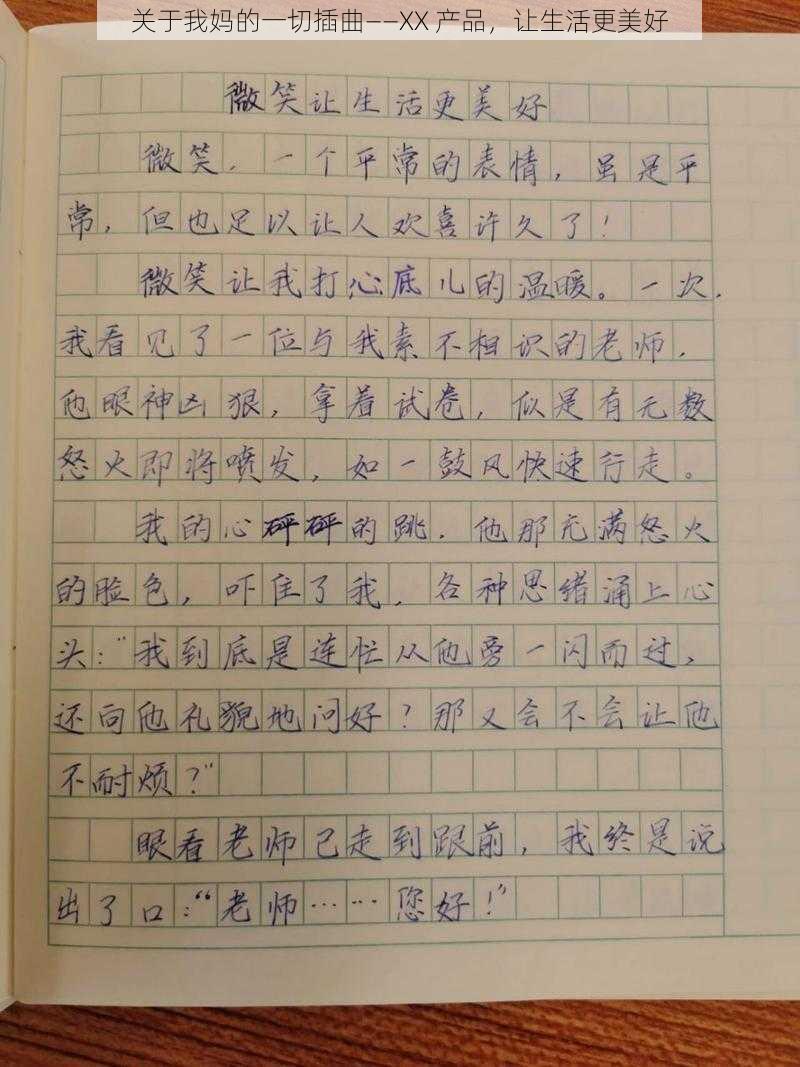 关于我妈的一切插曲——XX 产品，让生活更美好
微笑让生活更美好
微笑，一个平常的表情，虽是平
常，但也足以让人欢喜许久了！
微笑让我打心底儿的温暖。一次，
我看见了一位与我素不相识的老师，
他眼神凶狠，拿着试卷，似是有无数
怒火即将喷发，如一鼓风快速行走。
我的心砰砰的跳，他那充满怒火
的脸色，吓住了我，各种思绪涌上心
头：“我到底是连忙从他旁一闪而过，
还向他礼貌地问好？那又会不会让他
不耐烦？”
眼看老师已走到跟前，我终是说
出了口：“老师……您好！”